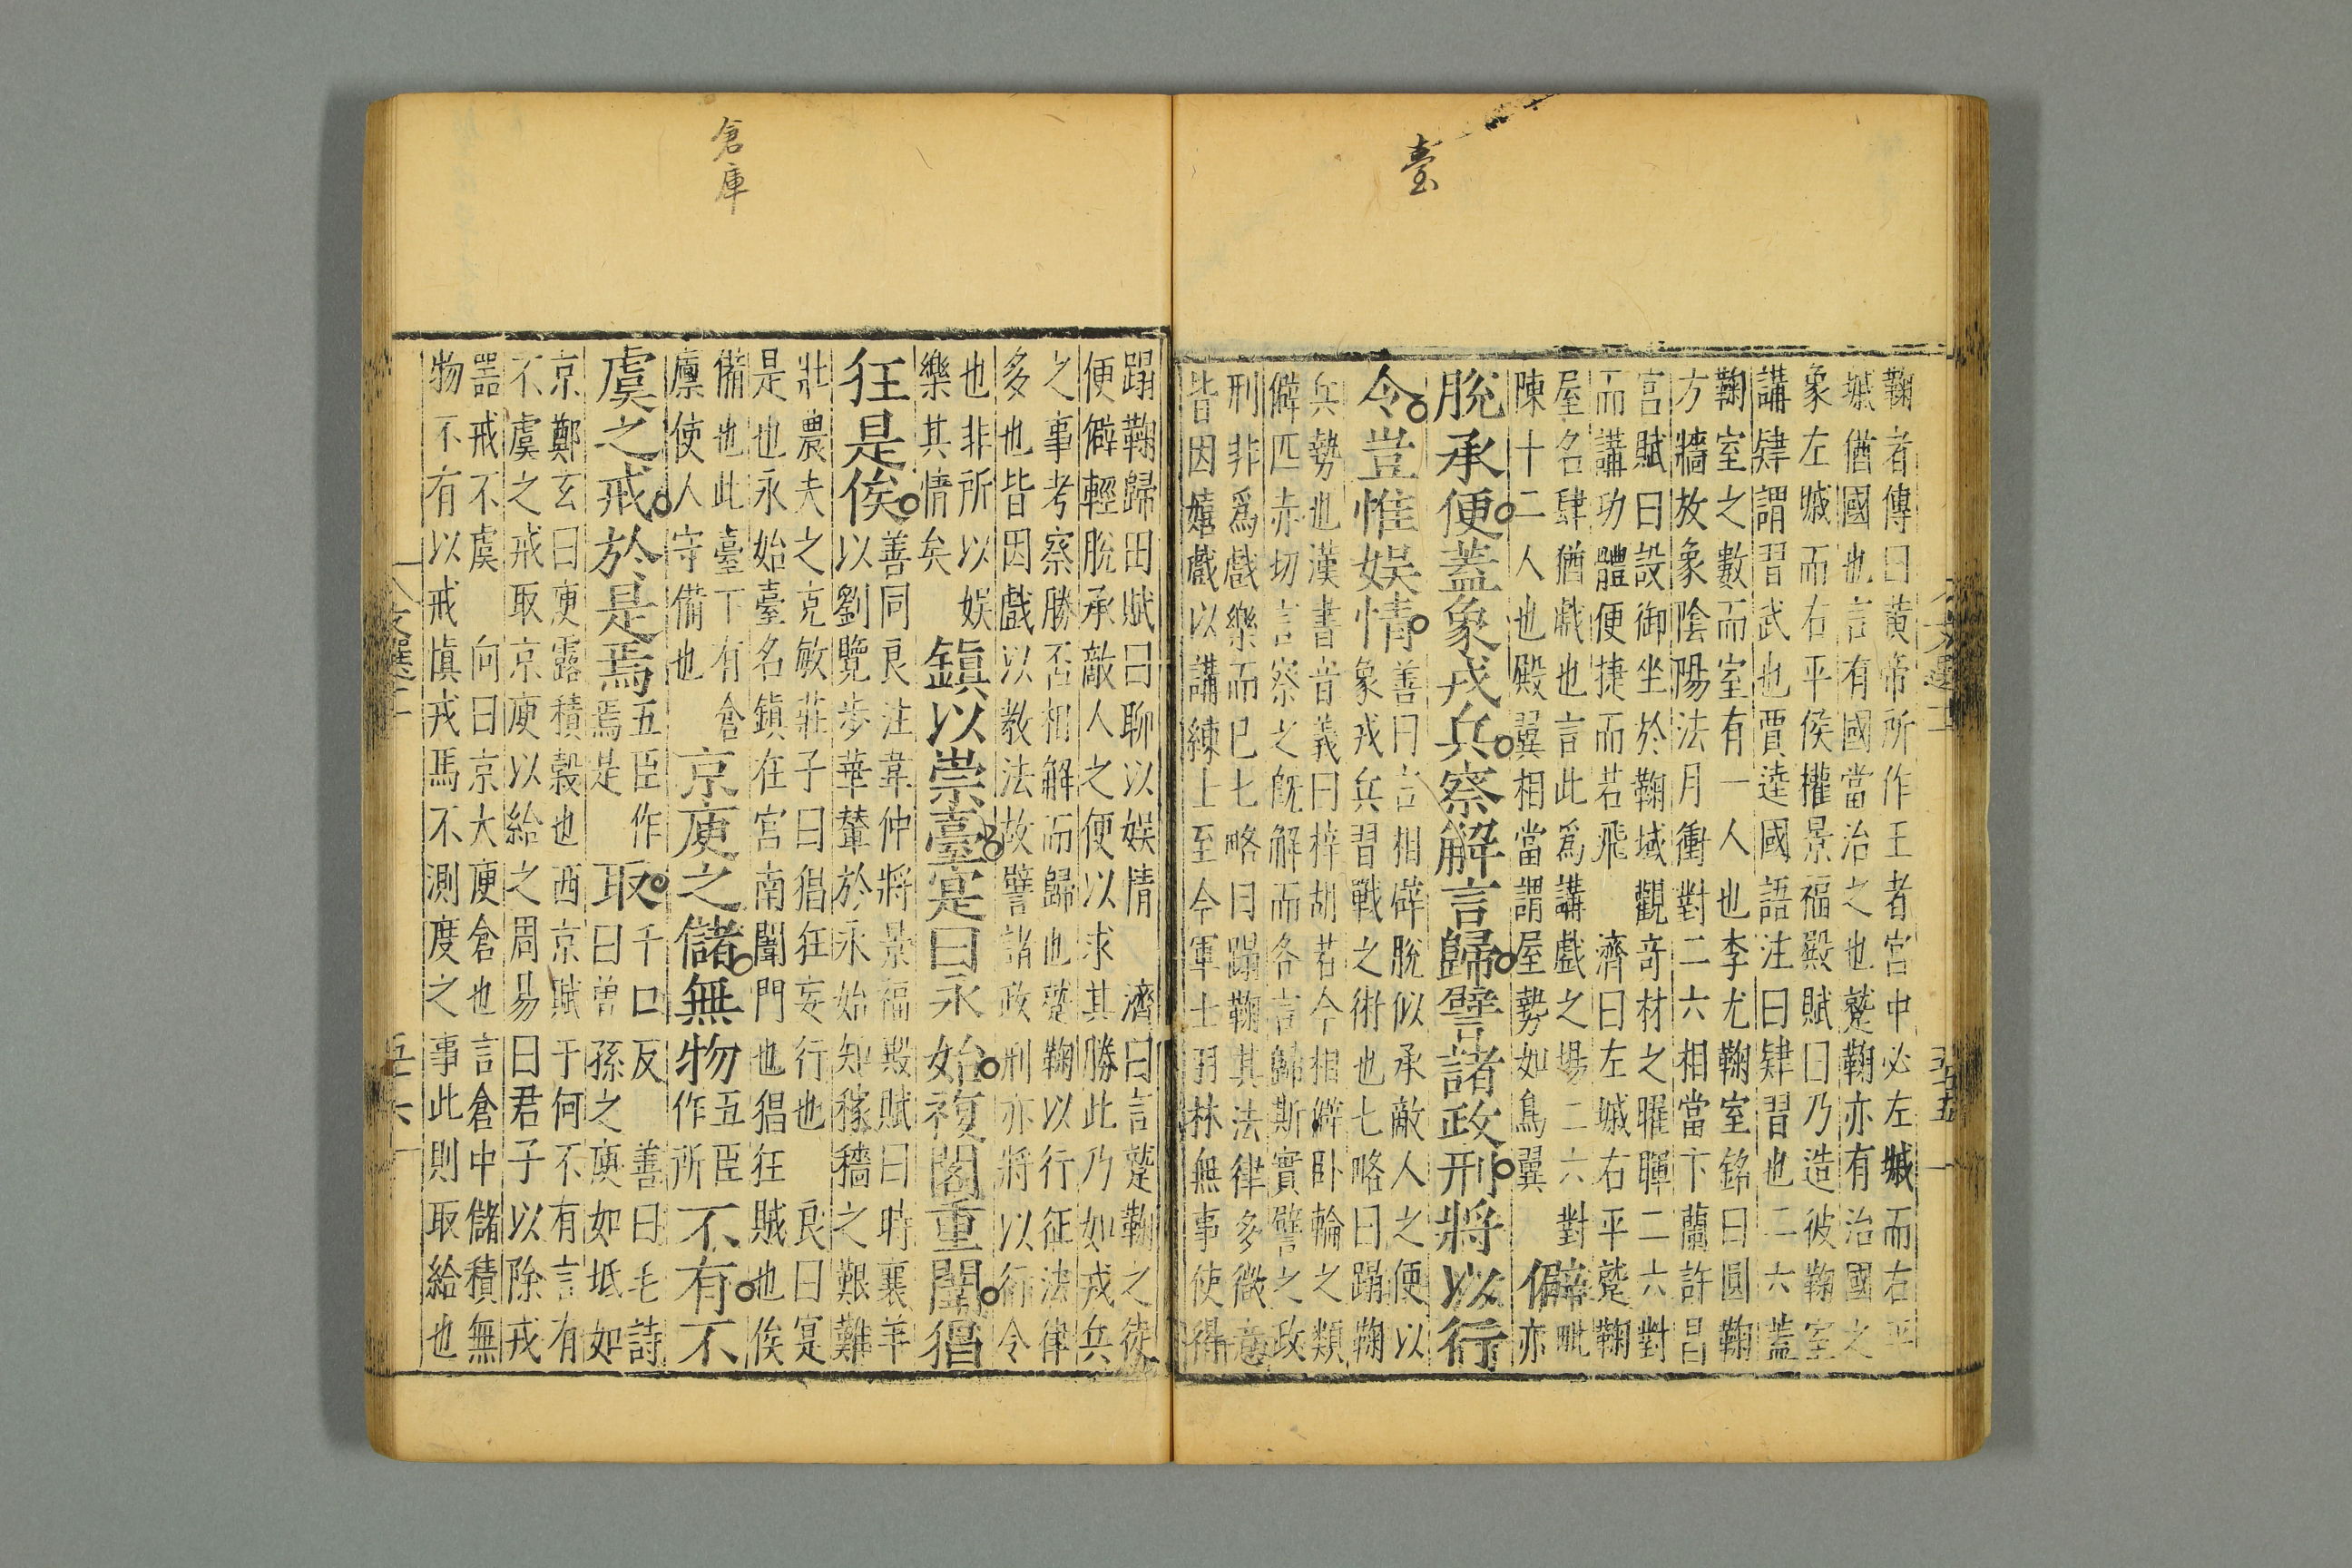 臺
鞠者傳曰黃帝所作王者宮中必左墄而右平
墄猶國也言有國當治之也蹵鞠亦有治國之
象左墄而右平侯權景福殿賦曰乃造彼鞠室
講肄謂習武也賈逵國語注曰肄習也二六蓋
鞠室之數而室有一人也李尤鞠室銘曰圓鞠
方牆放象陰陽法月衝對二六相當卞蘭許昌
宮賦曰設御坐於鞠域觀奇材之曜暉二六對
而講功體便捷而若飛 濟曰左墄右平蹵鞠
屋名肆猶戲也言此爲講戲之場二六對
陳十二人也殿翼相當謂屋勢如鳥翼
僻
毗
亦
脫承便蓋象戎兵察解言歸譬諸政刑將以行
令豈惟娛情
善曰言相僻脫似承敵人之便以
象戎兵習戰之術也七略曰蹋鞠
兵勢也漢書音義曰梓胡若今相僻卧輪之類
僻匹赤切言察之旣解而各言歸斯實譬之政
刑非爲戲樂而已七略曰蹋鞠其法律多微意
皆因嬉戲以講練士至今軍士羽林無事使得
蹋鞠歸田賦曰聊以娛情 濟曰言蹵鞠之徒
便僻輕脫承敵人之便以求其勝此乃如戎兵
之事考察勝否相解而歸也蹵鞠以行征法律
多也皆因戲以教法故譬諸政刑亦將以行令
也非所以娛
樂其情矣
鎮以崇臺寔曰永始複閣重闈猖
狂是俟
善同良注韋仲將景福殿賦曰時襄羊
以劉覽步華輦於永始知稼穡之艱難
壯農夫之克敏莊子曰猖狂妄行也 良曰寔
是也永始臺名鎮在宮南闈門也猖狂賊也俟
備也此臺下有倉
廩使人守備也
京庾之儲無物
五臣
作所
不有不
虞之戒於是焉
五臣作
焉是
取
千口反 善曰毛詩
曰曾孫之庾如坻如
京鄭玄曰庾露積穀也西京賦于何不有言有
不虞之戒取京庾以給之周易曰君子以除戎
噐戒不虞 向曰京大庾倉也言倉中儲積無
物不有以戒愼戎馬不測度之事此則取給也
倉庫